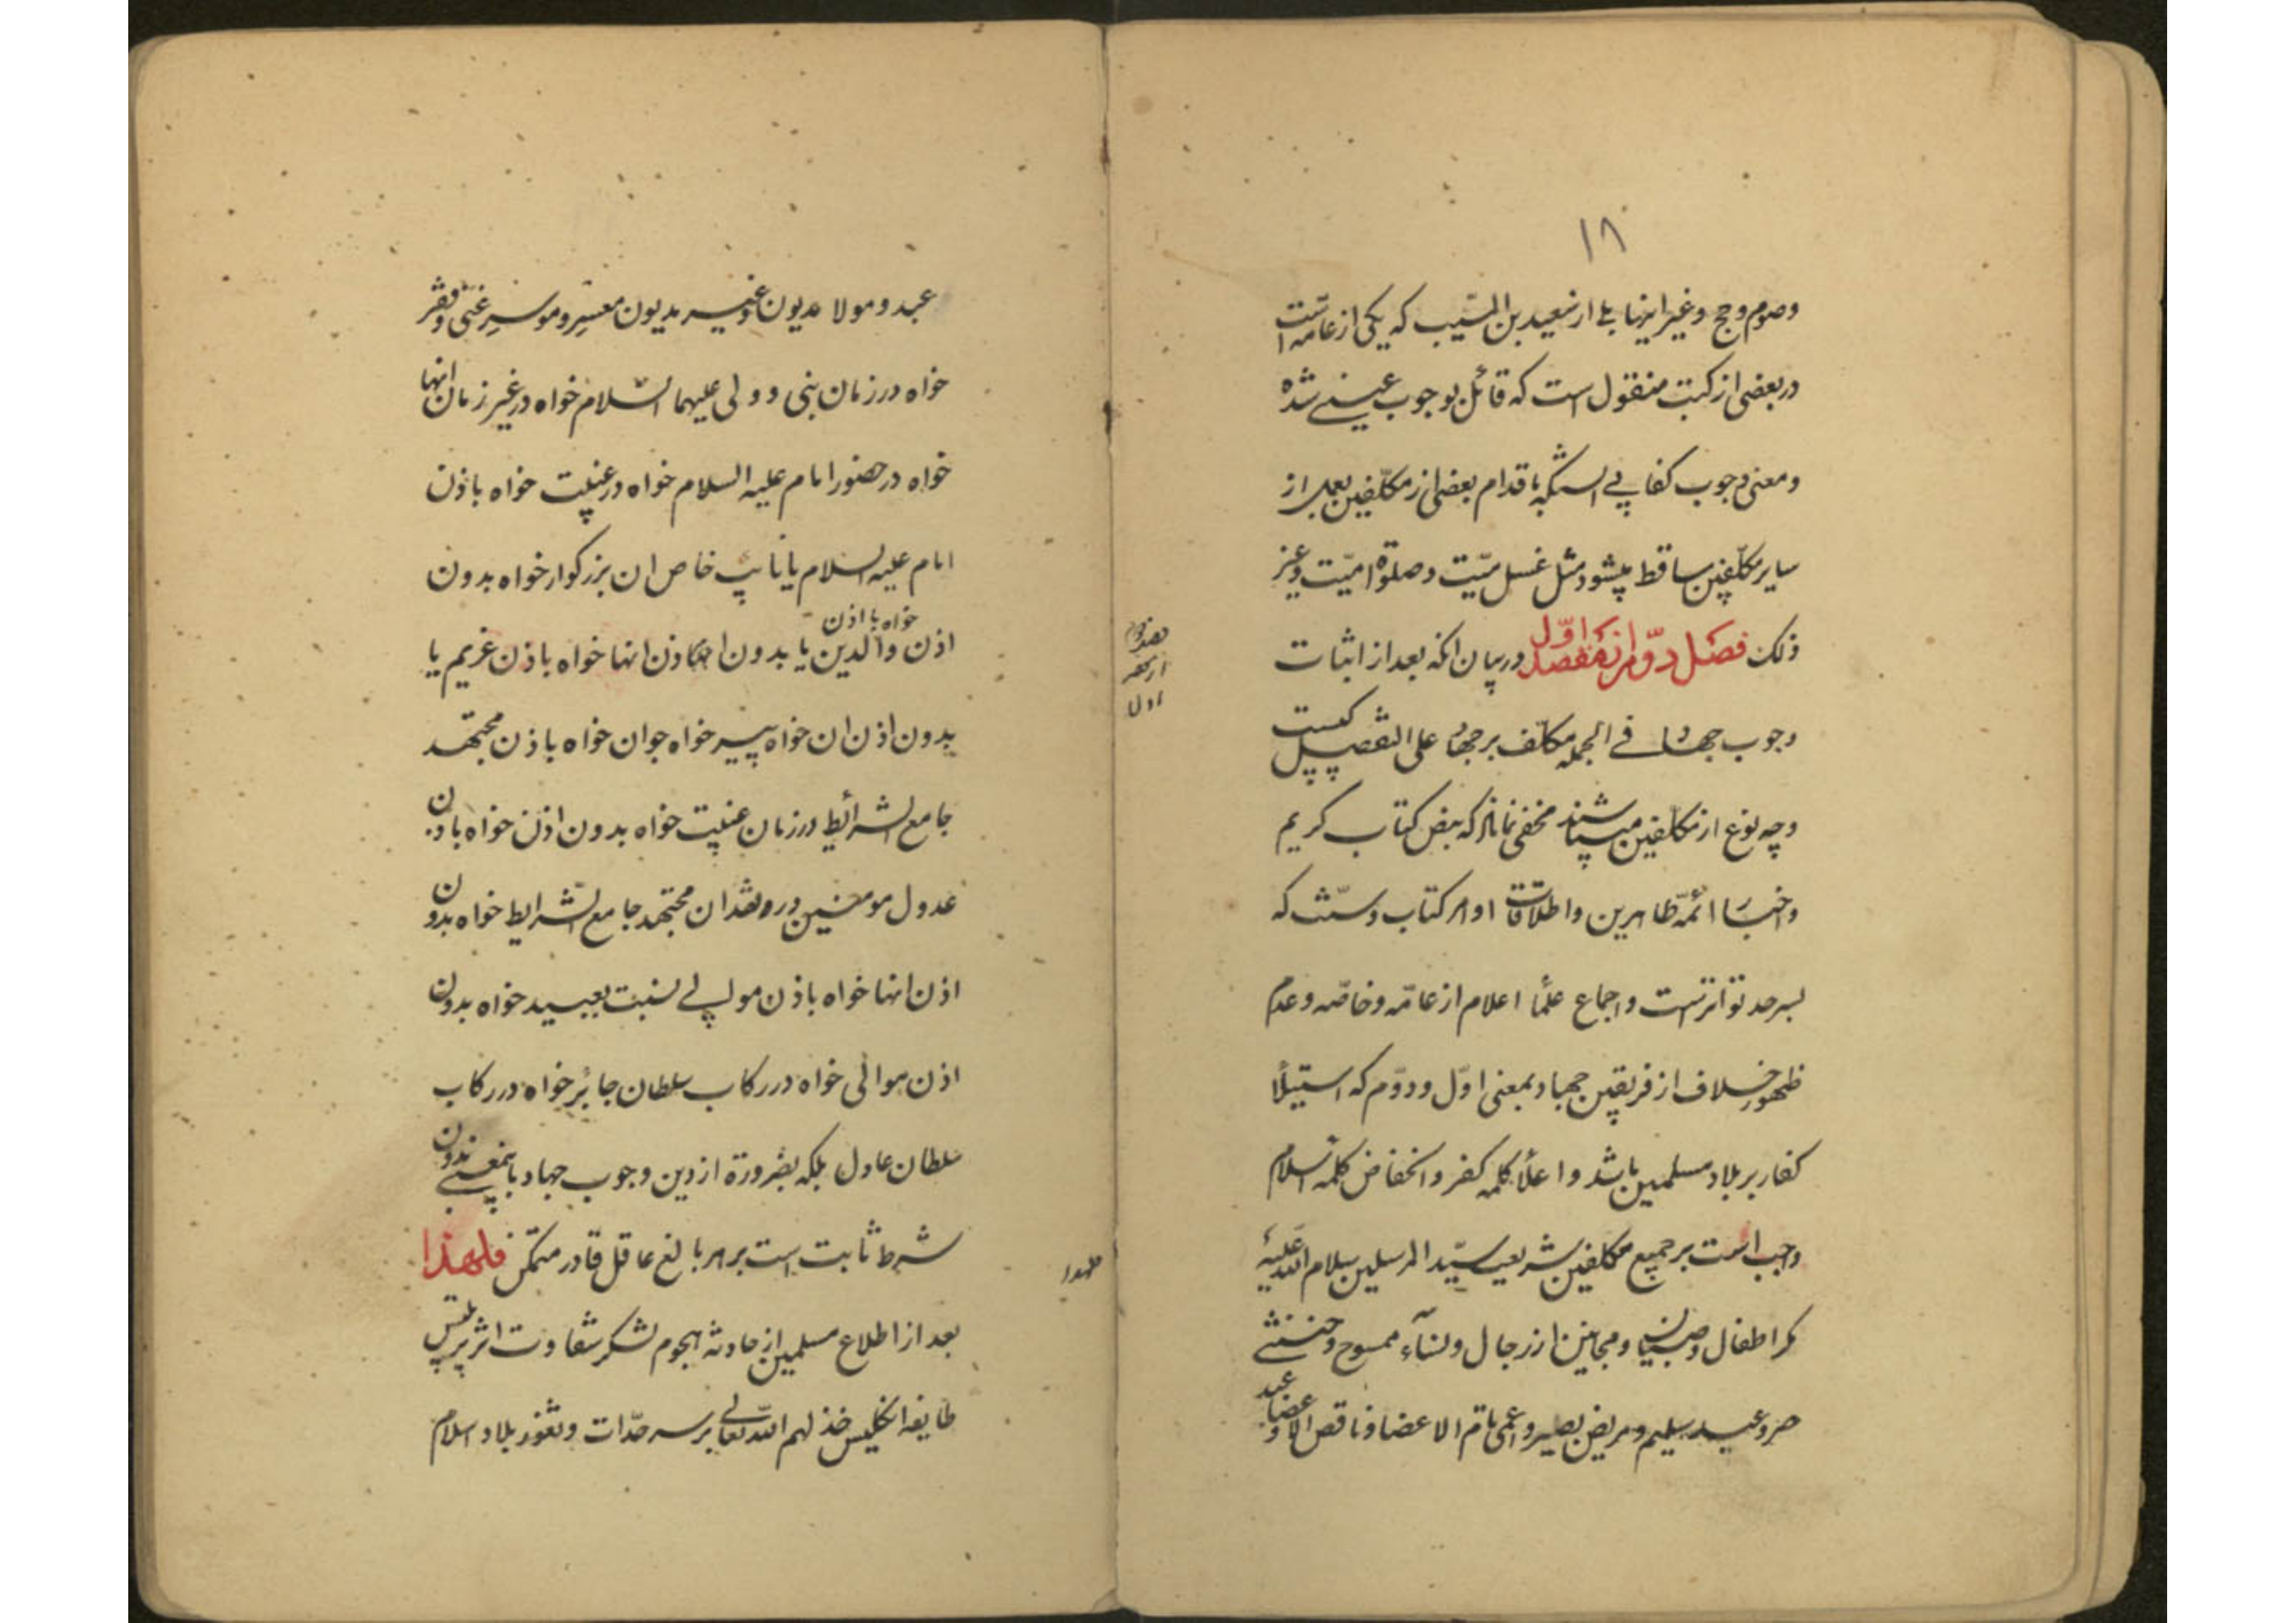 ۱۸
وصوم وحج وغیر اینها بلے از سعید بن المسیب که یکی از عامّه است
در بعضی از کتب منقول است که قائل بوجوب عینے شده
ومعنی وجوب کفاپے انستکه باقدام بعضی از مکلّفین بعمل از
سایر مکلّفین ساقط میشود مثل غسل میّت وصلوة امیّت وغیر
ذلک فصل دوّم از مقصد اوّل در بیان انکه بعد از اثبات
وجوب جهاد فے الجمله مکلّف بر جهاد علی التفصیل کیست
وچه نوع از مکلفین میباشند مخفی نماند که بنص کتاب کریم
واخبار ائمّه طاهرین واطلاقات اوامر کتاب وسنّت که
بسر حد تواتر است واجماع علمأ اعلام از عامّه وخاصّه وعدم
ظهور خلاف از فریقین جهاد بمعنی اوّل ودوّم که استیلأ
کفار بر بلاد مسلمین باشد واعلأ کلمه کفر وانخفاض کلمه اسلام
واجب است بر جمیع مکلفین شریعت سیّد المرسلین سلام الله علیه
مکر اطفال وصبیان ومجانین از رجال ونسآء ممسوح وخنثے
حر وعبد سلیم ومریض بصیر واعمی تام الاعضا وناقص الاعضا وعبد
هصددوم
اول
عبد ومولا مدیون وغیر مدیون معسر وموسر غنی وفقر
خواه در زمان بنی و ولی علیهما السّلام خواه در غیر زمان انها
خواه در حضور امام علیه السلام خواه در غیبت خواه باذن
امام علیه السلام یا نائب خاص ان بزرکوار خواه بدون
خواه با اذن
اذن والدین یا بدون اذن انها خواه باذن غریم یا
بدون اذن ان خواه پیر خواه جوان خواه باذن مجتهد
جامع الشرائط در زمان غیبت خواه بدون اذن خواه باذن
عدول مومنین در فقدان مجتهد جامع الشّرایط خواه بدون
اذن انها خواه باذن مولے نسبت بعبید خواه بدون
اذن موالی خواه در رکاب سلطان جائر خواه در رکاب
سلطان عادل بلکه بضرورة از دین وجوب جهاد باینمعنے بدون
شرط ثابت است بر هر بالغ عاقل قادر متمکن فلهذا
فلهذا
بعد از اطلاع مسلمین از حادثه هجوم لشکر شقاوت اثر پر تلبیس
طایفه انکلیس خذلهم الله تعالے بر سر حدّات وثغور بلاد اسلام